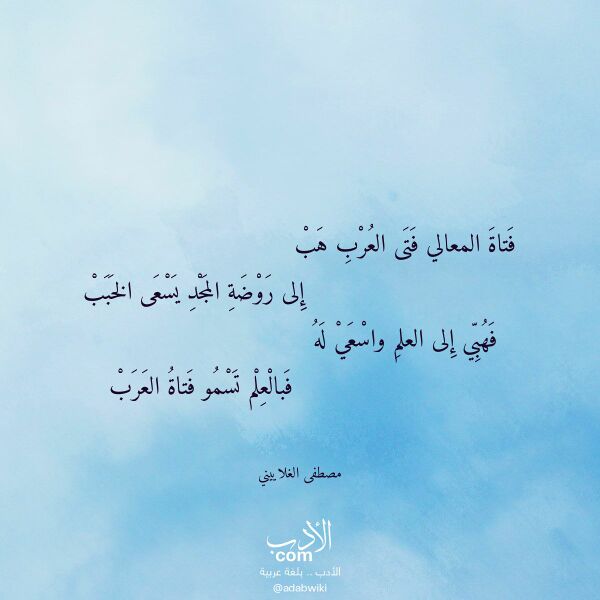 فَتاةَ المعالي فَتَى العُرْبِ هَبْ
إِلى رَوْضَةِ المَجْدِ يَسْعَى الخَبَبْ
فَهُبِّي إِلى العلمِ واسْعَيْ لَهُ
فَبالْعِلْم تَسْمُو فتاةُ العَرَبْ
مصطفى الغلاييني
الأدب
com
الأدب .. بلغة عربية
@adabwiki